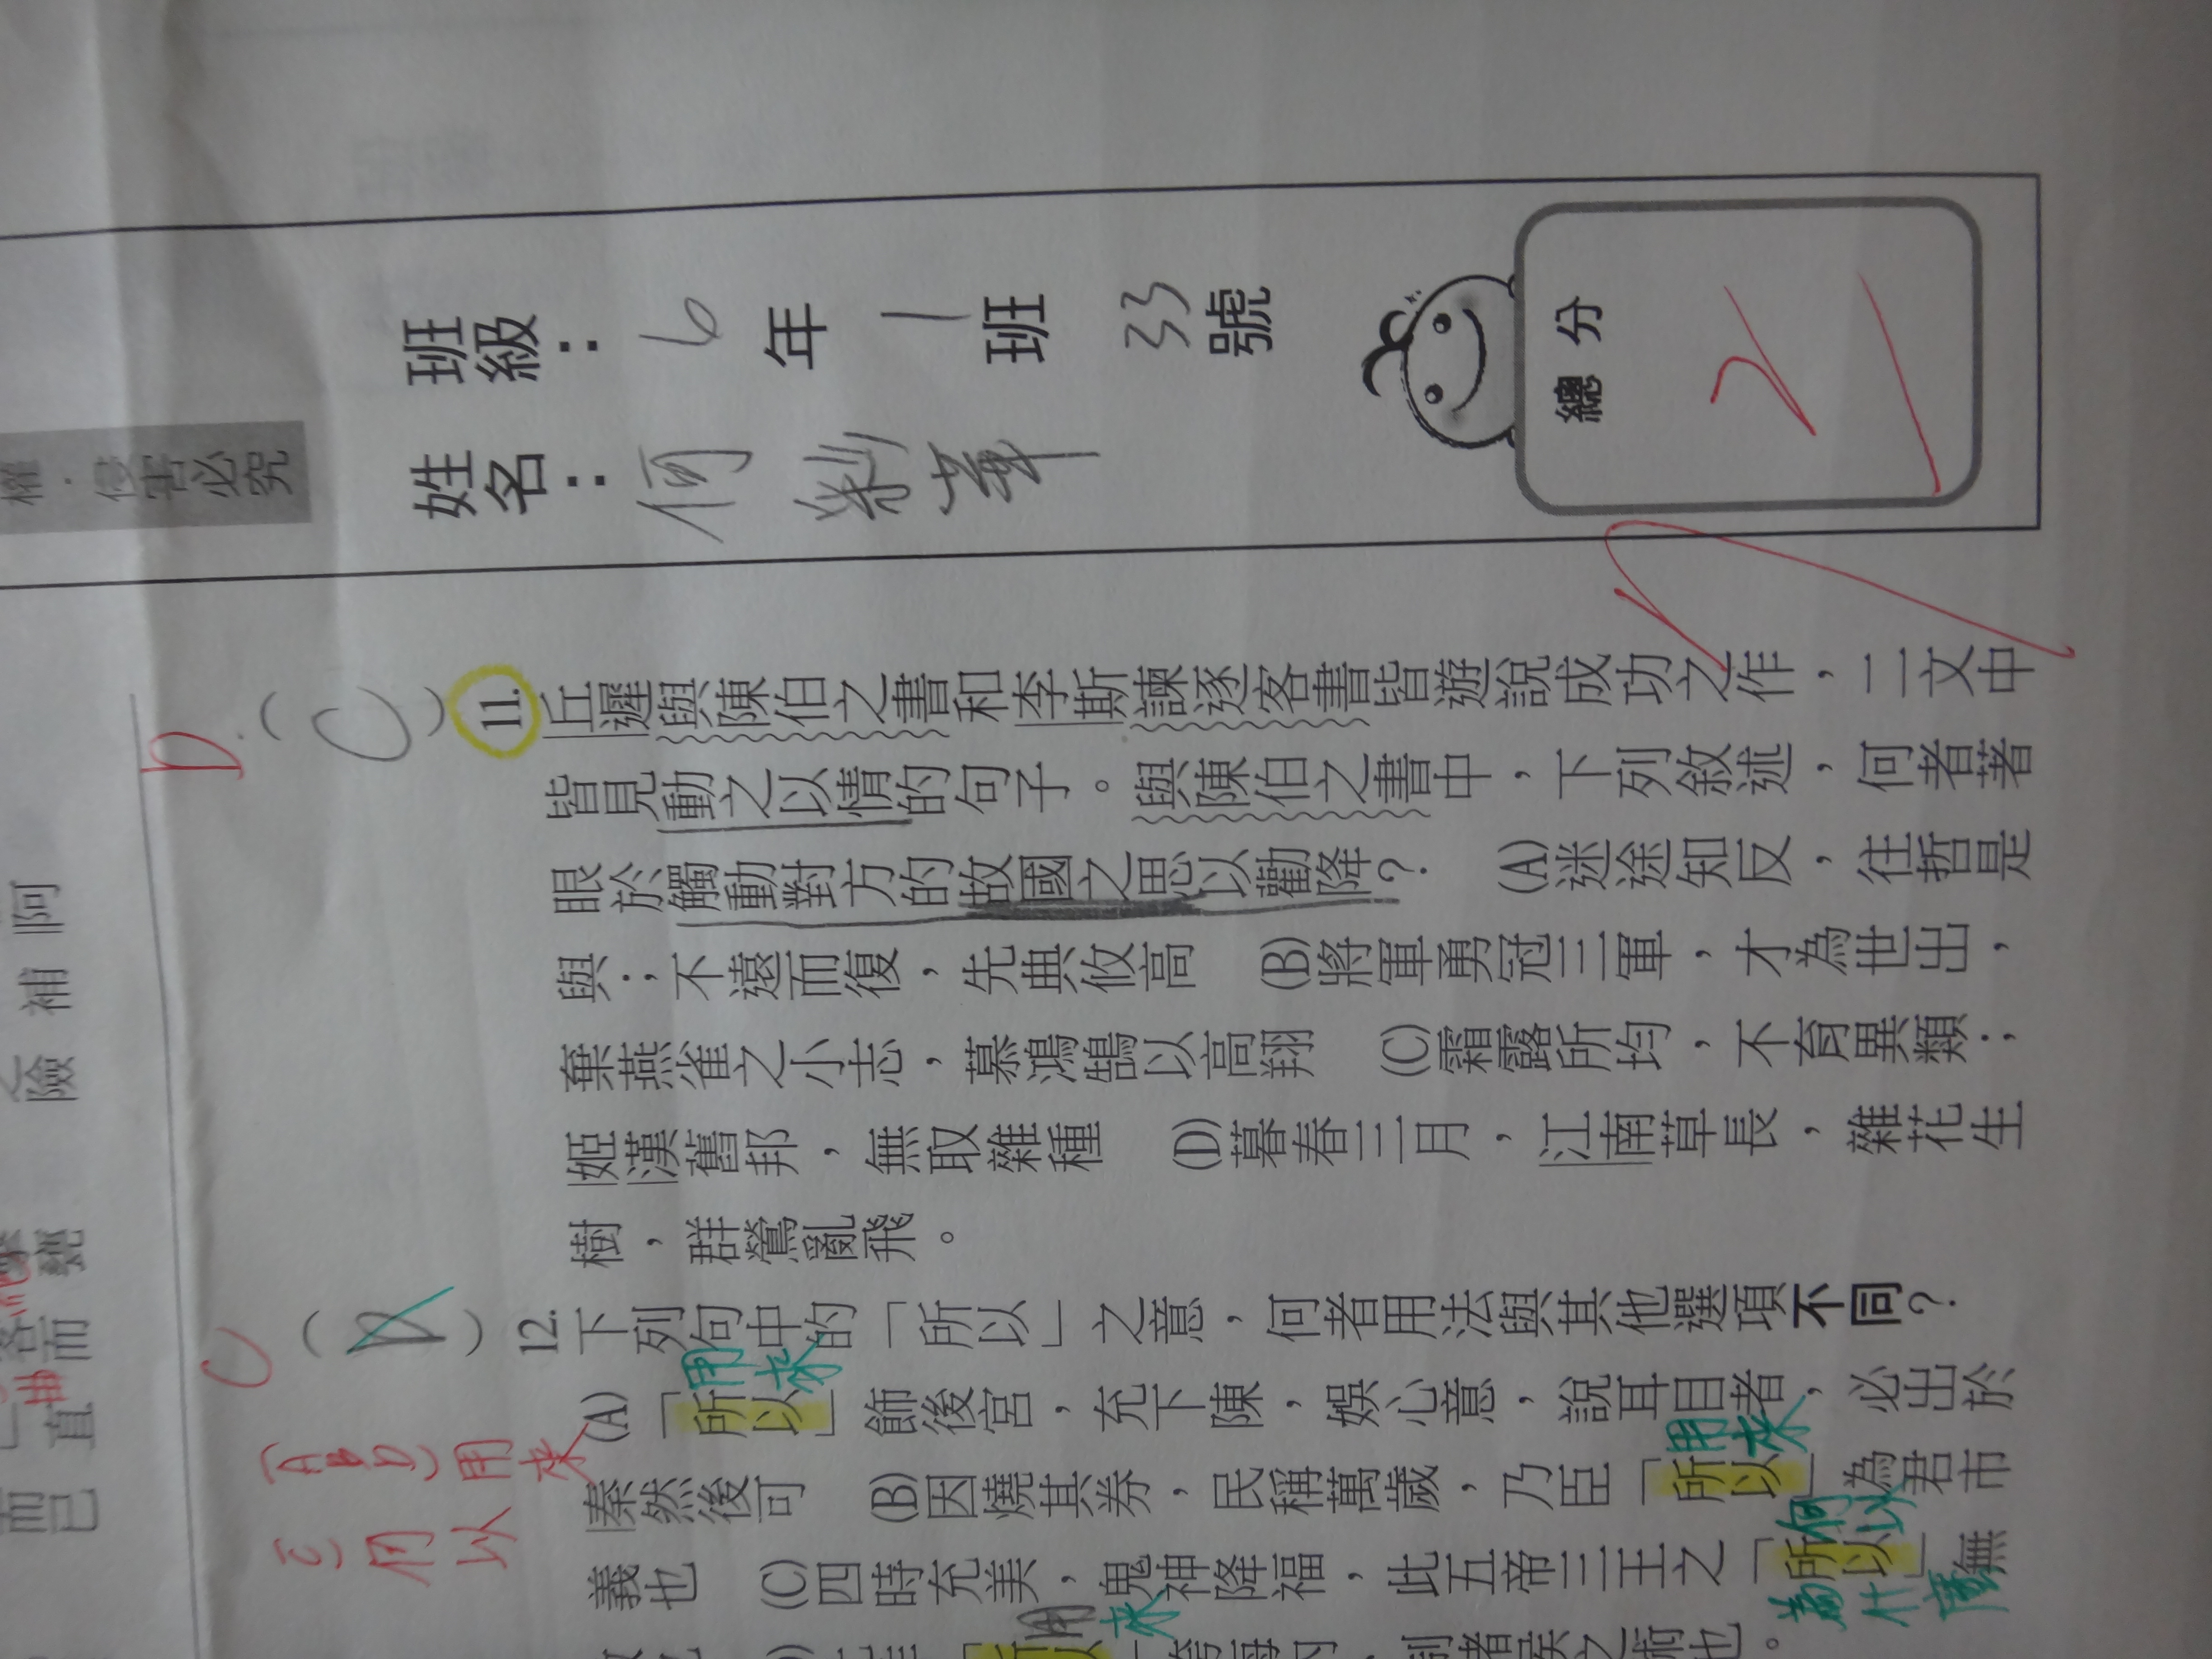 權．侵害必究
班級： 6 年 1 班 33 號
姓名： 何
總分
21
D. ( C ) 11. 丘遲與陳伯之書和李斯諫逐客書皆遊說成功之作，二文中
皆見動之以情的句子。與陳伯之書中，下列敘述，何者著
眼於觸動對方的故國之思以勸降？ (A)迷途知反，往哲是
與；不遠而復，先典攸高 (B)將軍勇冠三軍，才為世出，
棄燕雀之小志，慕鴻鵠以高翔 (C)霜露所均，不育異類；
姬漢舊邦，無取雜種 (D)暮春三月，江南草長，雜花生
樹，群鶯亂飛。
C ( D ) 12. 下列句中的「所以」之意，何者用法與其他選項不同？
用來
(A)「所以」飾後宮，充下陳，娛心意，說耳目者，必出於
(A B D) 用來
用來
秦然後可 (B)因燒其券，民稱萬歲，乃臣「所以」為君市
(C) 何以
何以
義也 (C)四時充美，鬼神降福，此五帝三王之「所以」無
為什麼
用來
制諸侯之術也。
險補阿
而
而已直